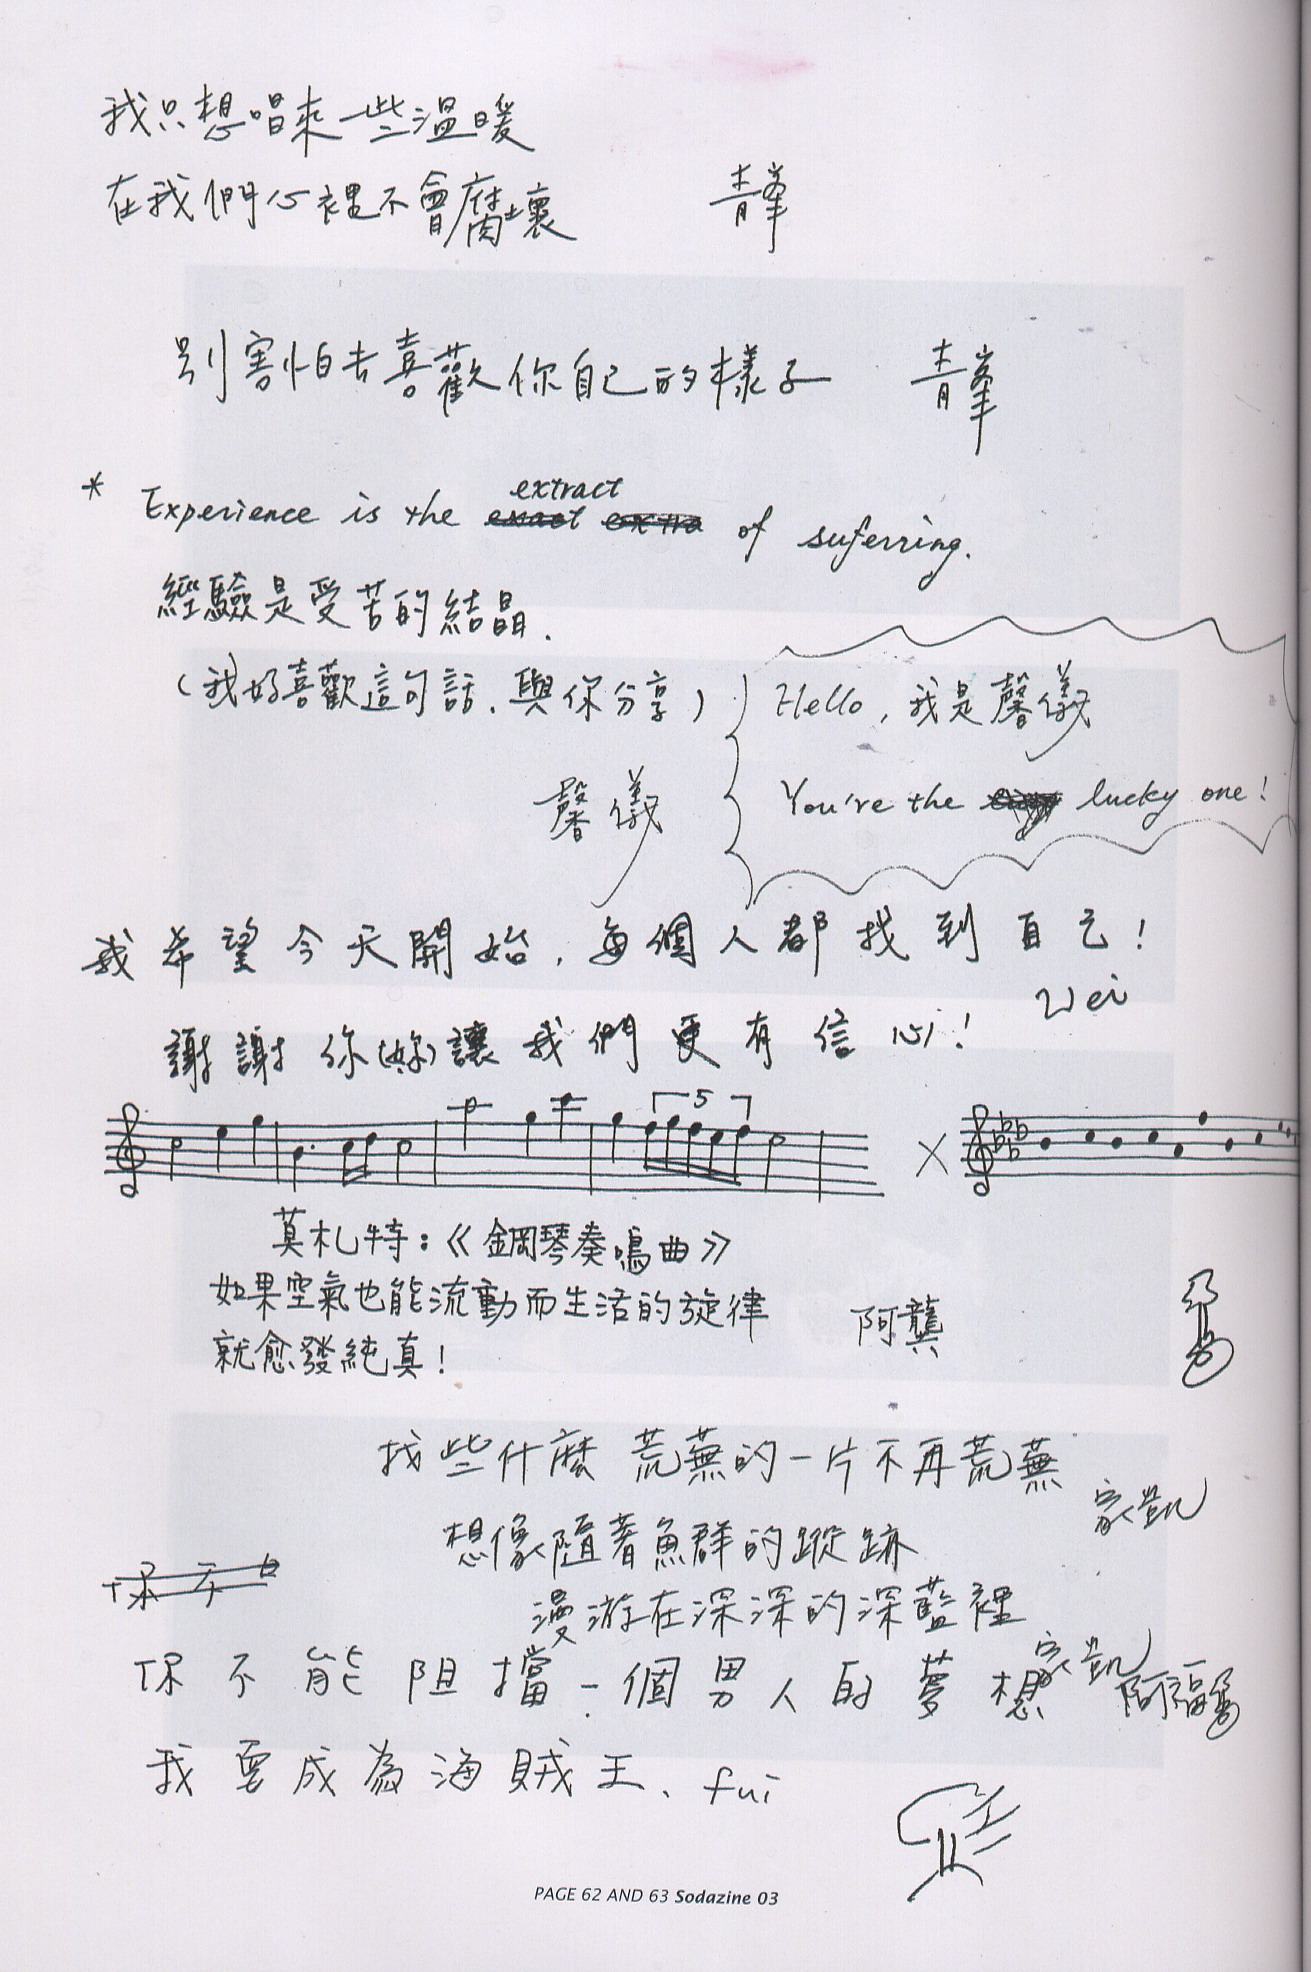 我只想唱來一些溫暖
在我們心裡不會腐壞 青峯
別害怕去喜歡你自己的樣子 青峯
* Experience is the extract of suferring.
經驗是受苦的結晶.
(我好喜歡這句話.與你分享)
馨儀
Hello, 我是馨儀
You're the lucky one!
我希望今天開始,每個人都找到自己!
Wei
謝謝你(妳)讓我們更有信心!
5
莫札特:《鋼琴奏鳴曲》
如果空氣也能流動而生活的旋律
就愈發純真!
阿龔
找些什麼 荒蕪的一片不再荒蕪
家凱
想像隨著魚群的蹤跡
漫游在深深的深藍裡
家凱
你不能阻擋一個男人的夢想
阿福
我要成為海賊王、fui
PAGE 62 AND 63 Sodazine 03